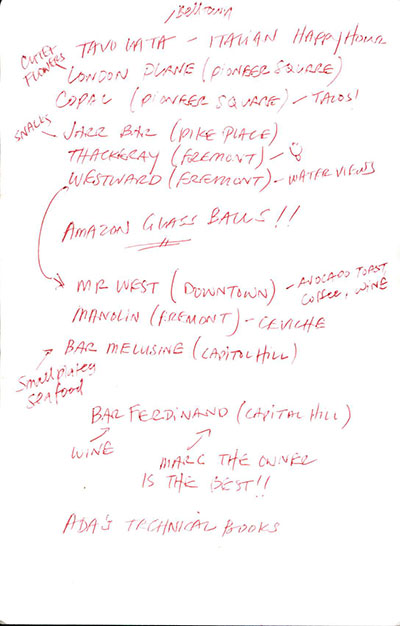 /Belltown
TAVOLATA - ITALIAN HAPPY HOUR
CUTEST FLOWERS
LONDON PLANE (PIONEER SQUARE)
COPAL (PIONEER SQUARE) - TACOS!
SNACKS
JARR BAR (PIKE PLACE)
THACKERAY (FREMONT) -
WESTWARD (FREMONT) - WATER VIEWS
AMAZON GLASS BALLS!!
MR WEST (DOWNTOWN) - AVOCADO TOAST,
COFFEE, WINE
MANOLIN (FREMONT) - CEVICHE
BAR MELUSINE (CAPITOL HILL)
Small plates
seafood
BAR FERDINAND (CAPITOL HILL)
WINE
MARC THE OWNER
IS THE BEST!!
ADA'S TECHNICAL BOOKS